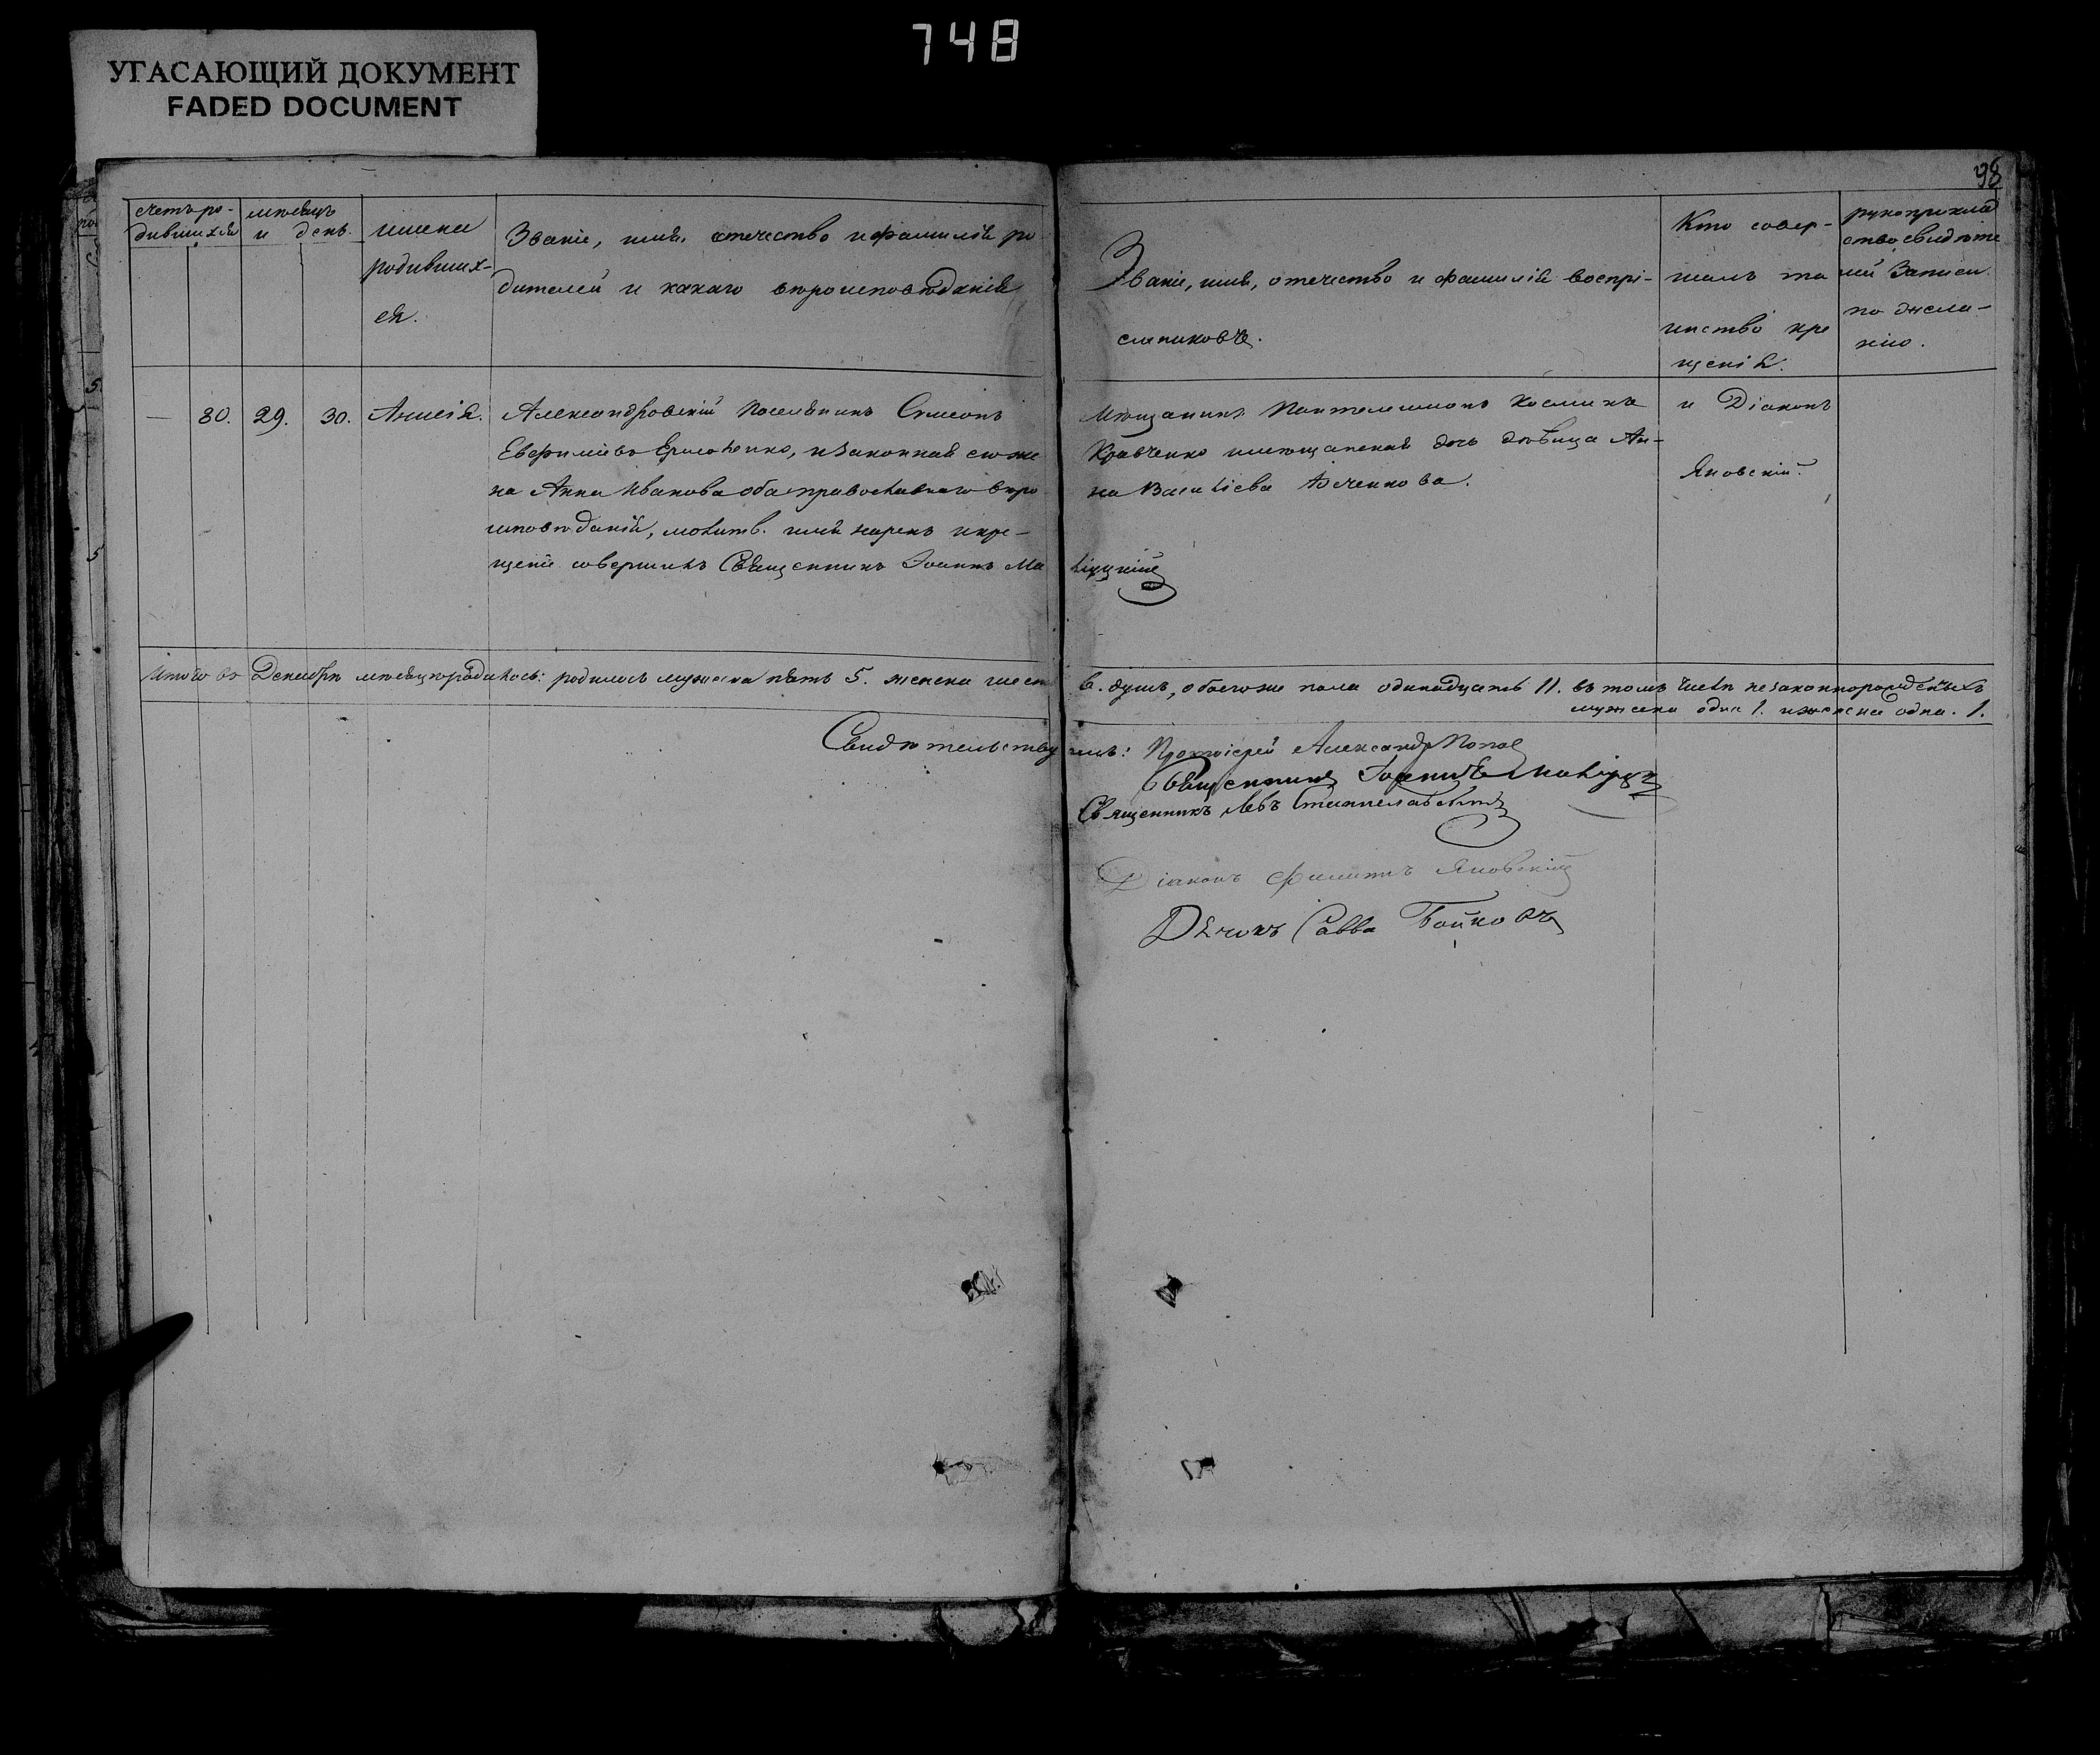 748
УГАСАЮЩИЙ ДОКУМЕНТ
FADED DOCUMENT
98
счетъ ро-
дившихся
мѣсяцъ
и день.
имена
родивших-
ся.
Званіе, имя, отечество и фамилія ро
дителей и какаго вѣроисповѣданія
Званіе, имя, отечество и фамилія воспрі-
емниковъ.
Кто совер-
шалъ та
инство кре
щенія.
рукоприклад
ство свидѣте
лей записи
по жела-
нію.
— 80. 29. 30. Анисія.
Александровскій поселянинъ Симеонъ
Евфиміевъ Ермоленко, и законная его же
на Анна Иванова оба православнаго вѣро
исповѣданія, молитв. имя нарекъ и кре-
щеніе совершилъ Священникъ Іоаннъ Ма
лицкій
Мѣщанинъ Пантелеимонъ Косминъ
Кравченко и мѣщанская дочь дѣвица Ан-
на Василіева
и Діаконъ
Яновскій.
Итого въ Декабрѣ мѣсяцѣ родилось: мужеска пять 5. женска шесть
6. душъ, обоего же пола одинадцать 11. въ томъ числѣ незаконнорожденныхъ
мужеска одна 1. и женска одна. 1.
Свидѣтельству
емъ: Протоіерей Александръ Поповъ
Священникъ Іоаннъ Малицкій
Священникъ Левъ
Діаконъ Филиппъ Яновскій
Дьячокъ Савва Бойковъ